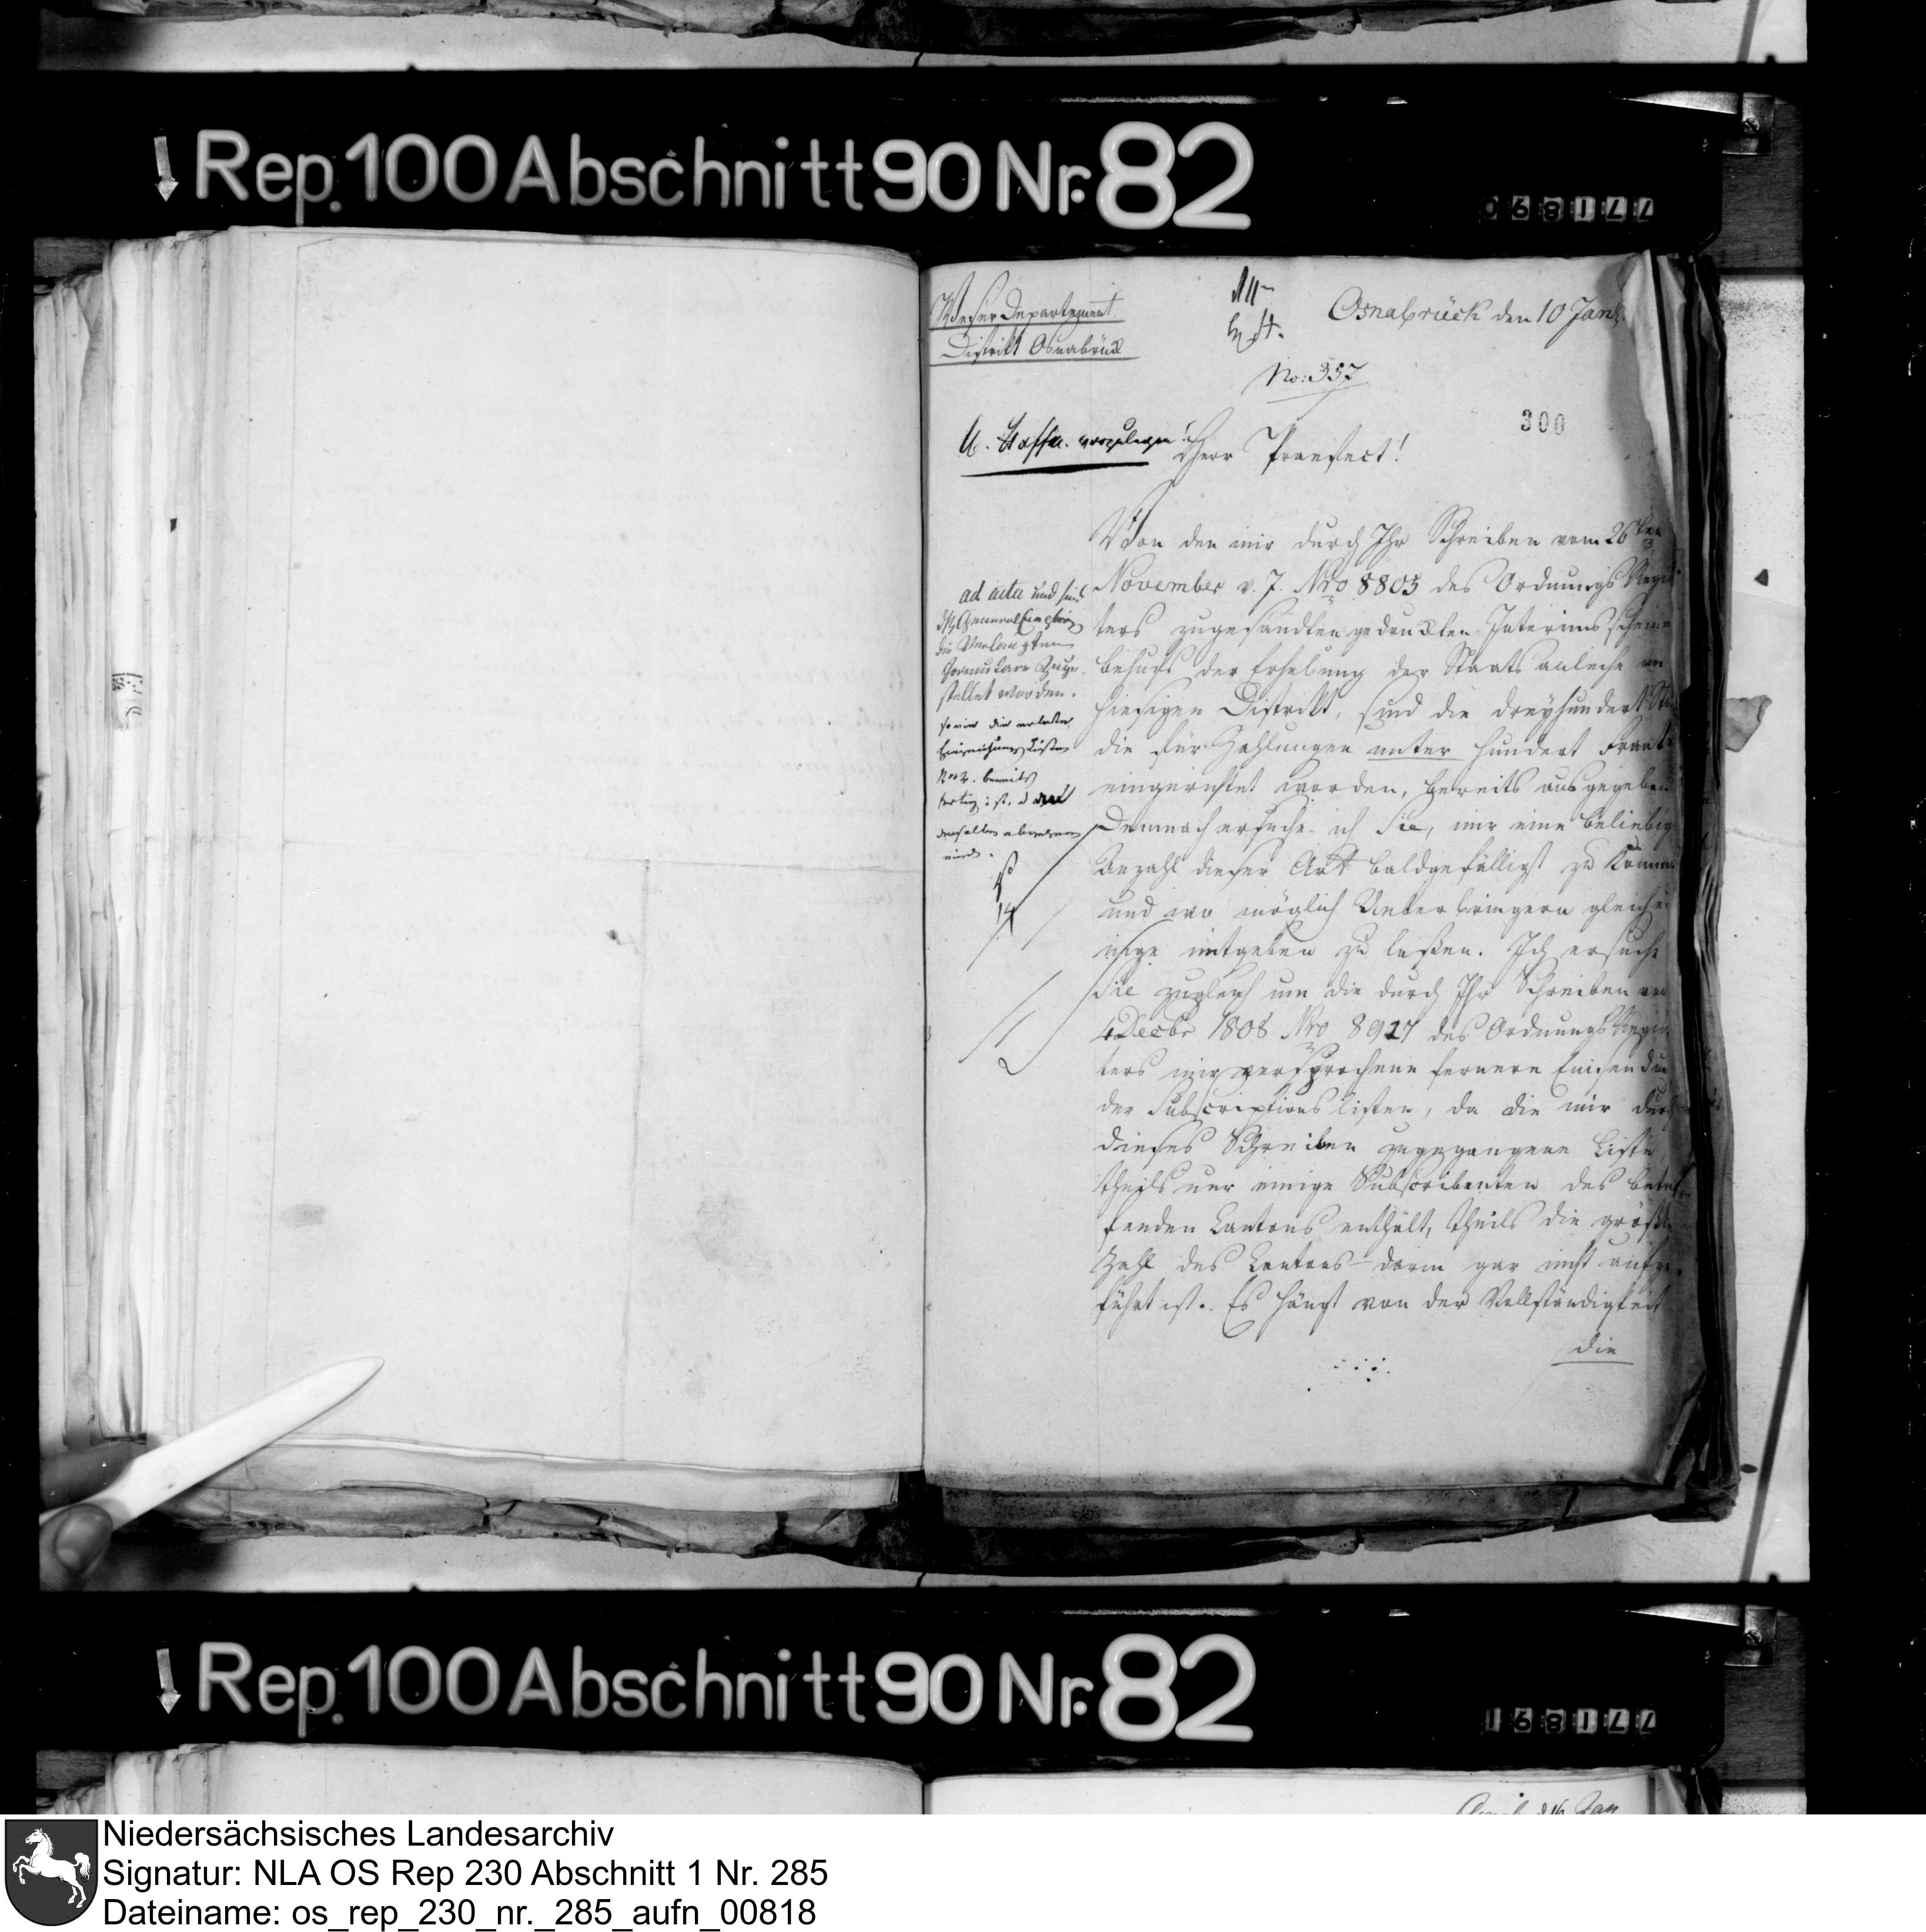 Rep. 100 Abschnitt 90 Nr. 82
Weser Departement.
Distrikt Osnabrück
Osnabrück den 10 Jan
No: 357
300
vorzulegen!
Herr Praefect!
Von den mir durch Ihr Schreiben vom 26ten
November v. J. Nro 8805 des Ordnungs Regis-
ters zugesandten gedruckten Interimsscheine
behufs der Erhebung der Staats anleihe im
hiesigen Distrikt, sind die dreyhundert
die für Zahlungen unter hundert Frank
eingerichtet worden, bereits ausgegeben
Demnach ersuche ich Sie, mir eine beliebige
Anzahl dieser Art baldgefälligst zu
und wo möglich Ueberbringern gleich
einige mitgeben zu laßen. Ich ersuche
Sie zugleich um die durch Ihr Schreiben vom
4 Decbr 1808 Nro 8927 des Ordnungs Regis-
ters mir versprochene fernere Einsendung
der Subscriptionslisten, da die mir durch
dieses Schreiben zugegangene Liste
theils nur einige Subscribenten des betref-
fenden Cantons enthält, theils die größte
Zahl des Cantons darin gar nicht aufge-
führt ist. Es hängt von der Vollständigkeit
die
ad acta und sind
die verlangten
Formulare Zuge-
stellet worden.
No 2. bereits
fertig ist, und
denselben abgehen
wird.
14
Rep. 100 Abschnitt 90 Nr. 82
Niedersächsisches Landesarchiv
Signatur: NLA OS Rep 230 Abschnitt 1 Nr. 285
Dateiname: os_rep_230_nr._285_aufn_00818